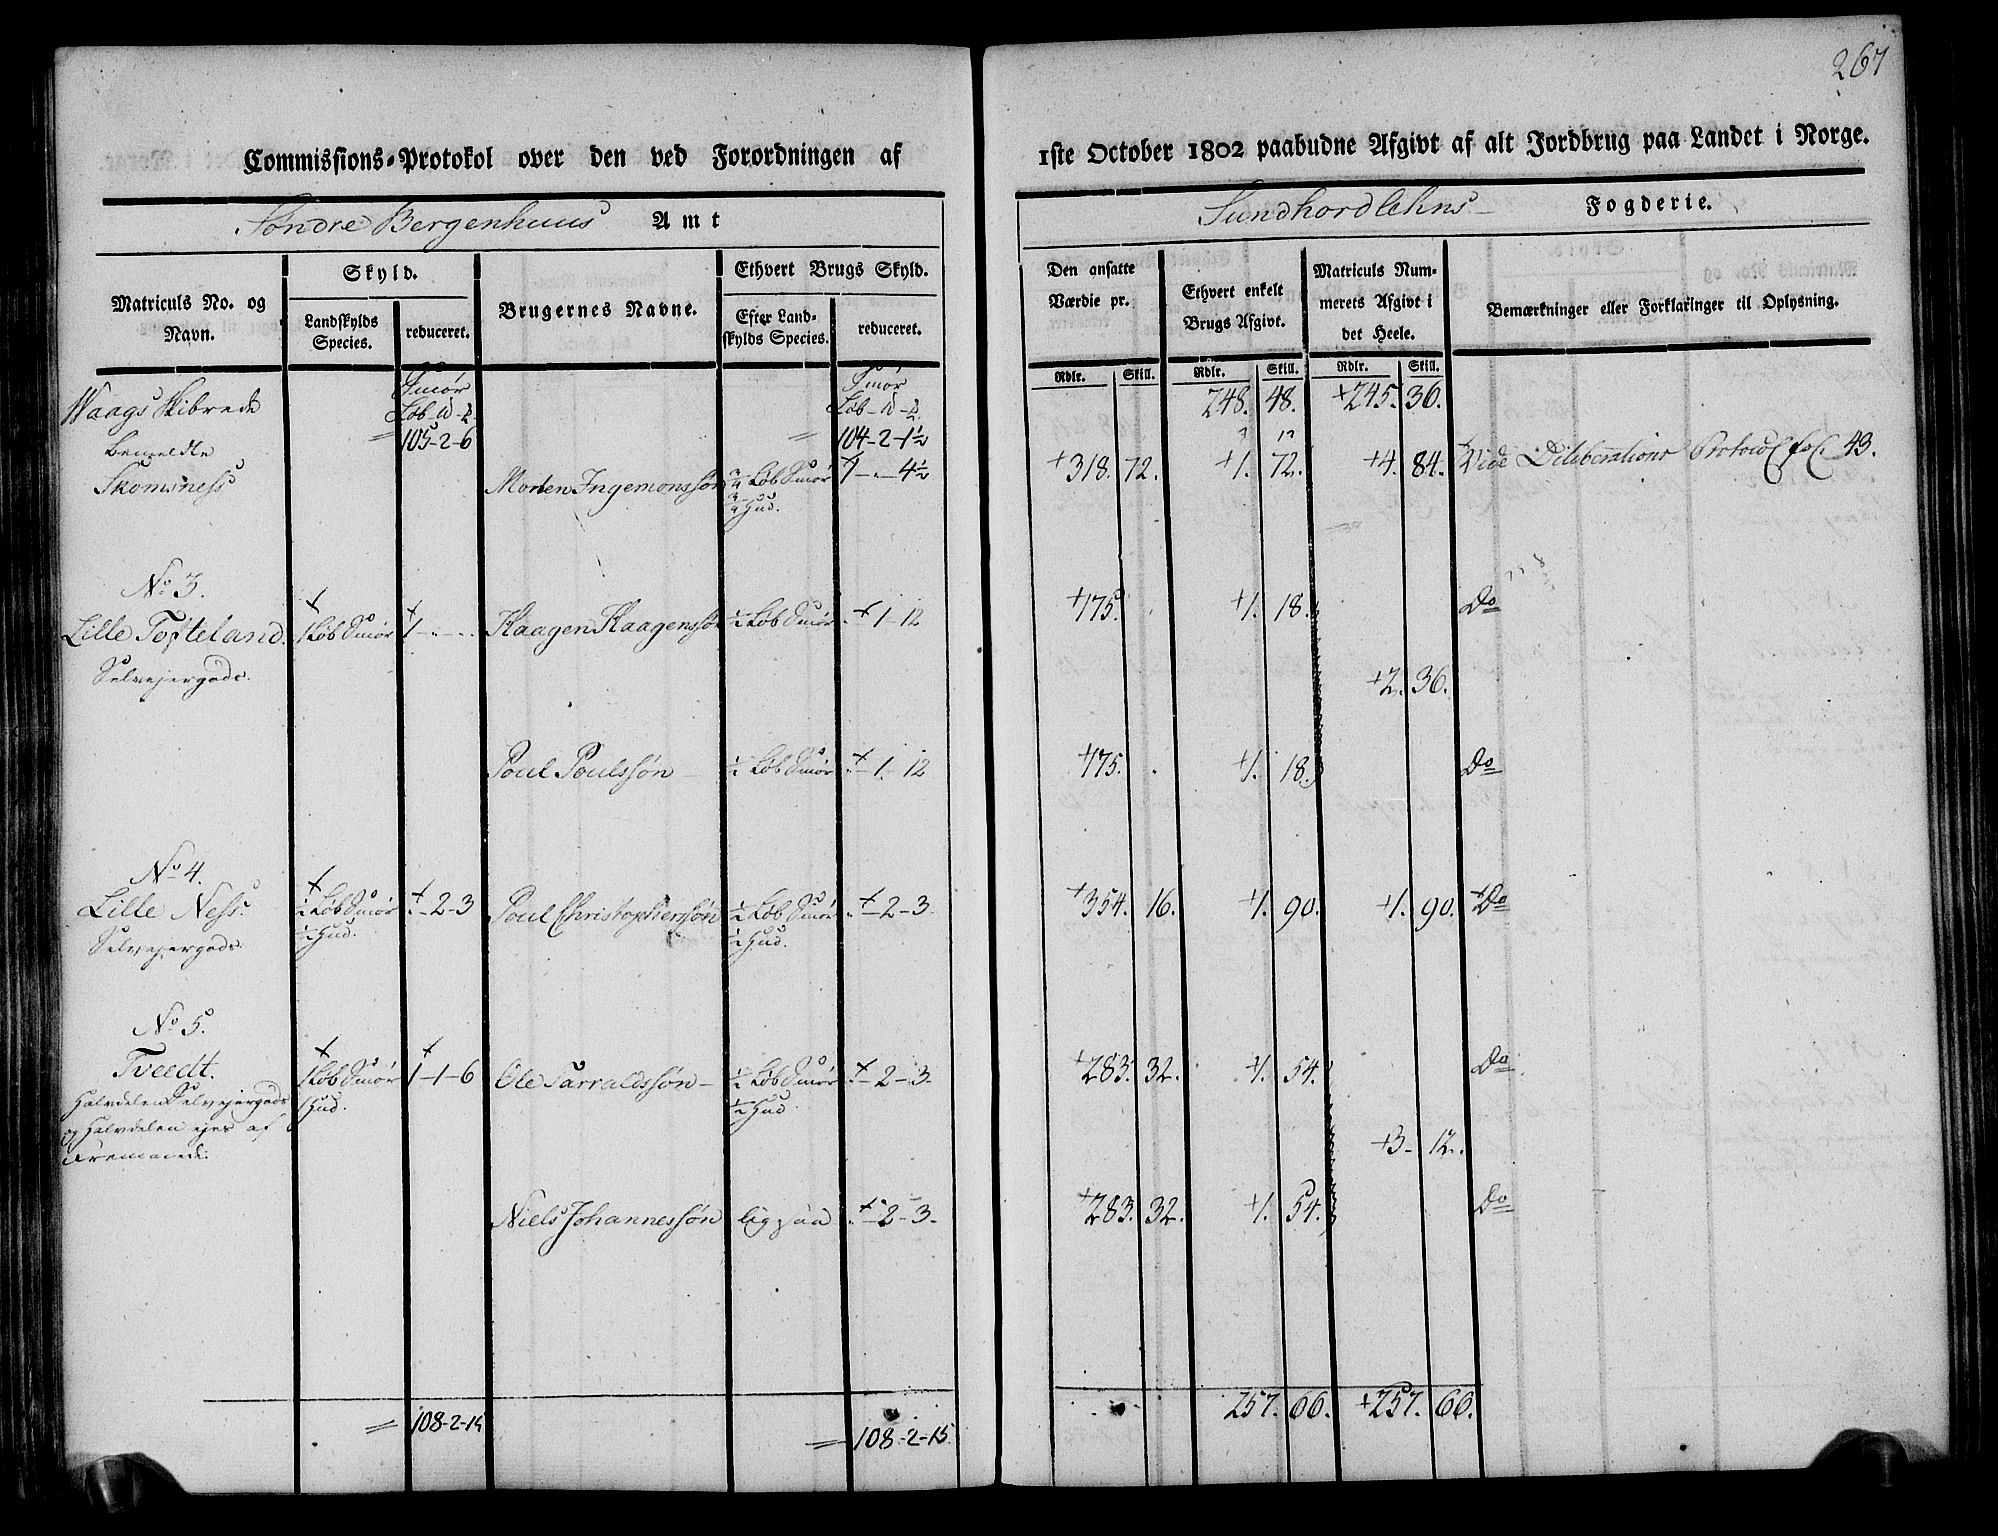 267
Commissions-Protokol over den ved Forordningen af 1ste October 1802 paabudne Afgivt af alt Jordbrug paa Landet i Norge.
Søndre Bergenhuus Amt Sundhordlehns Fogderie.
Matriculs No. og Navn.
Skyld.
Landskylds Species.
reduceret.
Brugernes Navne.
Ethvert Brugs Skyld.
Efter Landskylds Species.
reduceret.
Den ansatte Værdie pr.
Ethvert enkelt Brugs Afgivt.
Matriculs Nummerets Afgivt i det Heele.
Bemærkninger eller Forklaringer til Oplysning.
Rdlr. Skill. Rdlr. Skill. Rdlr. Skill.
Waags Skibrede Smør Smør 248. 48. +245. 36.
Løb - Løb -
bemeldte 105-2-6 104-2-1½
Skomsness Morten Ingemonssøn ¾ Løb Smør 1 - . - 4½ +318. 72. +1. 72. +4. 84. Vide Deliberations Protocol fol. 43.
¾ Hud.
No 3.
Lille Tofteland. 1 Løb Smør 1 - . - . Haagen Haagenssøn ½ Løb Smør . - 1 - 12 +175. . +1. 18. Do
Selvejergods. +2. 36.
Poul Poulssøn ½ Løb Smør . - 1 - 12 +175. . +1. 18. Do
No 4.
Lille Ness. ½ Løb Smør . - 2 - 3 Poul Christophersøn ½ Løb Smør . - 2 - 3 +354. 16. +1. 90. +1. 90. +Do
Selvejergods ½ Hud. ½ Hud.
No 5.
Tveedt. 1 Løb Smør 1-1-6 Ole Tarraldssøn ½ Løb Smør . - 2 - 3. +283. 32. +1. 54. Do
Halvdelen Selvejergods 1 Hud. ½ Hud
og Halvdelen ejes af +3- 12.
Fremmede.
Niels Johannessøn ligesaa . - 2 - 3. +283. 32. +1. 54. Do
108-2-15 108-2-15. 257. 66. +257. 66.